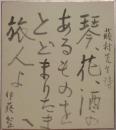 藤村先生詩
琴花酒の
あるものを
とどまりたまへ
旅人よ